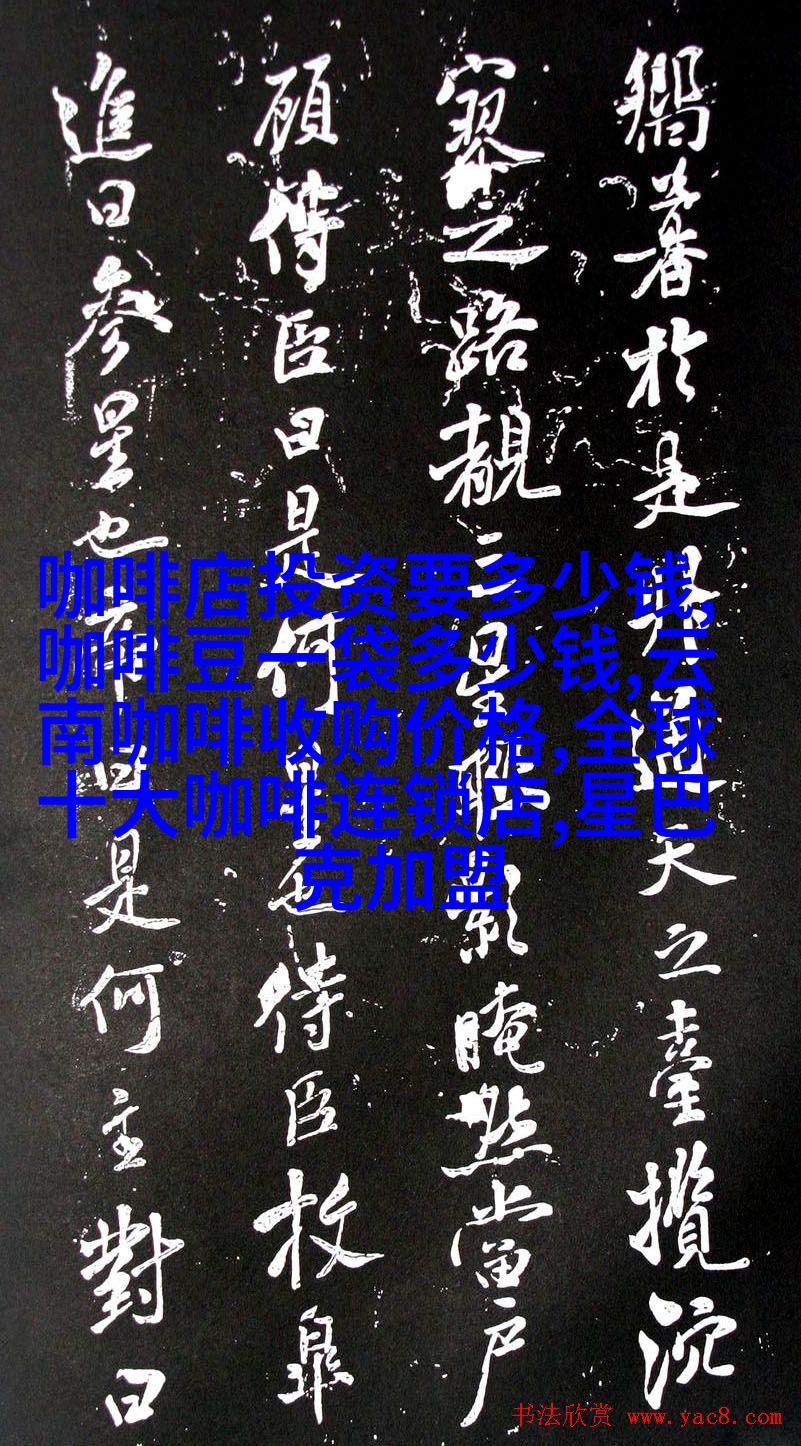 於是通天之臺攬沉
寥之路覩二星聯影晻然當戶
顧侍臣曰是何星也侍臣枚皐
進曰參星也帝曰是何主對曰
咖啡店投资要多少钱,
咖啡豆一袋多少钱,云
南咖啡收购价格,全球
十大咖啡连锁店,星巴
克加盟
书法欣赏 www.yac8.com